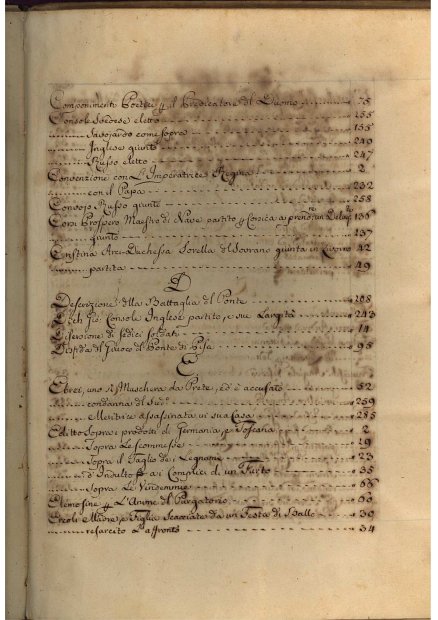 Componimenti Poetici p il Predicatore del Duomo 75
Console Svedese eletto 155
Savojardo come sopra 155
Inglese giunto 240
Russo eletto 247
Convenzione con L'Imperatrice Regina 2
con il Papa 232
Convojo Russo giunto 258
Corsi Prospero Maestro di Nave partito p Corsica a prend: un 135
giunto 137
Cristina Arci-Duchessa Sorella del Sovrano giunta in Livorno 42
partita 49
D
Descrizione della Battaglia del Ponte 108
Gio: Console Inglese partito, e sue Largità 243
Diserzione di sedici Soldati 14
Disfida del Giuoco del Ponte di Pisa 95
E
Ebreo, uno si Maschera da Prete, ed è accusato 52
condanna del Sud.o 259
Meritrice assassinata in sua Casa 255
Editto Sopra i prodotti di Germania, e Toscana 2
Sopra Le Scommesse 19
Sopra il Taglio de i Legnami 23
d'Indulto p i Complici di un Furto 35
Sopra Le Vendemmie
Elemosine p L'Anime del Purgatorio
Ercoli Madre, e Figlia Scacciate da un Festa di Ballo 30
risarcito L'affronto 34